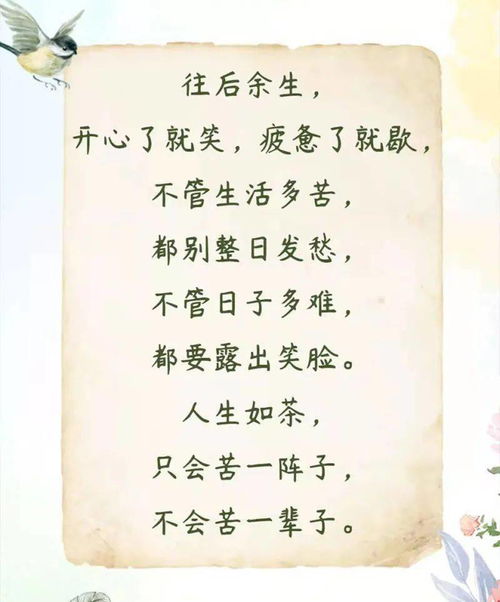 往后余生，
开心了就笑，疲惫了就歇，
不管生活多苦，
都别整日发愁，
不管日子多难，
都要露出笑脸。
人生如茶，
只会苦一阵子，
不会苦一辈子。